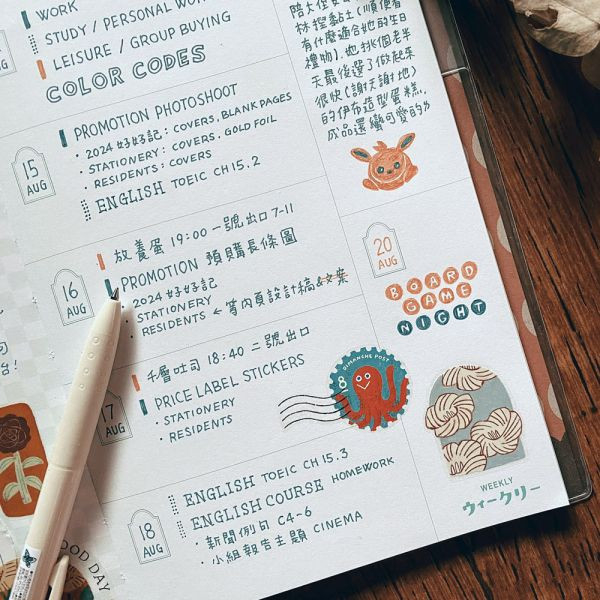 WORK
STUDY / PERSONAL WO
LEISURE / GROUP BUYING
COLOR CODES
AUG
15
AUG
PROMOTION PHOTOSHOOT
• 2024 好好記: COVERS, BLANK PAGES
• STATIONERY: COVERS, GOLD FOIL
• RESIDENTS: COVERS
ENGLISH TOEIC CH 15.2
16
AUG
放養蛋 19:00 一號出口 7-11
PROMOTION 預購長條圖
2024 好好記
STATIONERY
RESIDENTS ← 等內頁設計稿&文案
17
AUG
千層吐司 18:40 二號出口
PRICE LABEL STICKERS
• STATIONERY
• RESIDENTS
18
DIMANCHE POST
18
AUG
ENGLISH TOEIC CH 15.3
ENGLISH COURSE HOMEWORK
• 新聞例句 C4-6
• 小組報告主題 CINEMA
林捏黏土(順便看
有什麼適合她的生日
禮物), 她挑個老半
天最後選了做起來
很快(謝天謝地)
的伊布造型蛋糕,
成品還蠻可愛的♪
20
AUG
BOARD
GAME
NIGHT
WEEKLY
ウィークリー
OOD DAY